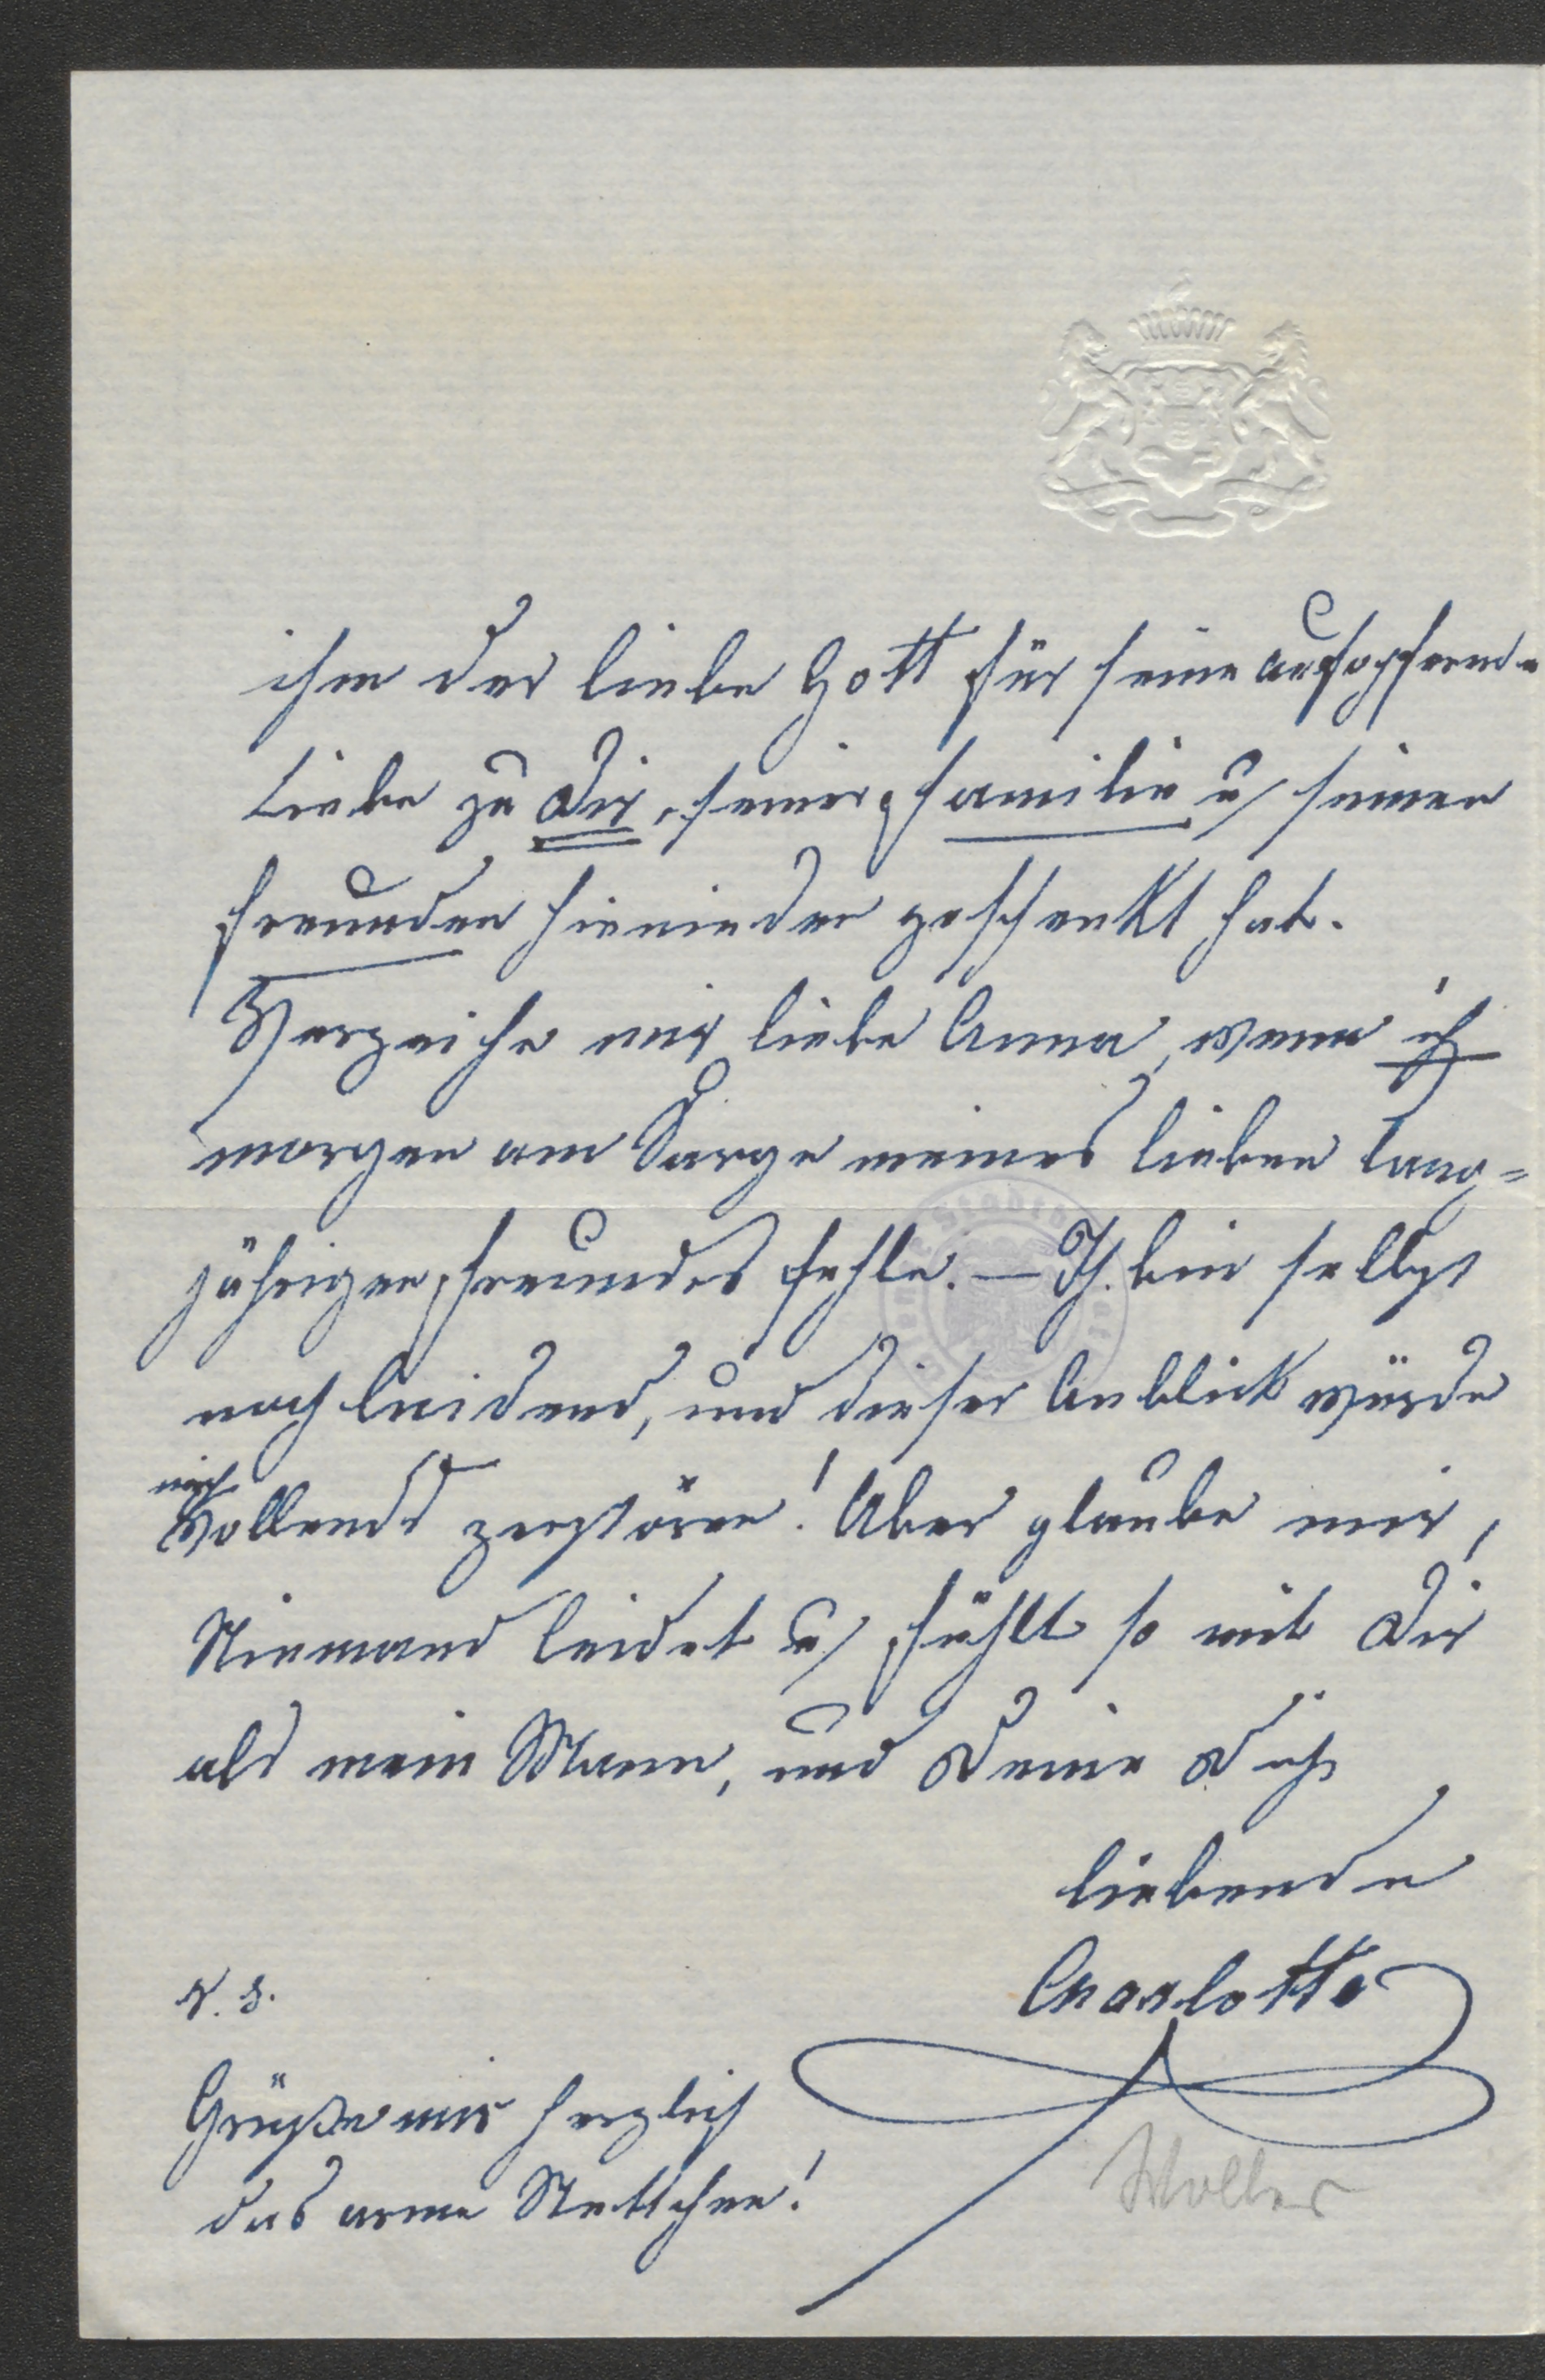 ihm der liebe Gott für seine aufopfernde
Liebe zu Dir, seiner Familie u seinen
Freunden hienieden geschenkt hat.
Verzeihe mir liebe Anna, wenn ich
morgen am Sarge meines lieben lang=
jährigen Freundes fehle. — Ich bin selbst
noch leidend, und dieser Anblick würde
mich
vollends zerstören! Aber glaube mir,
Niemand leidet u fühlt so mit Dir
als mein Mann, und Deine Dich
liebende
Charlotte
N. S.
Grüße mir herzlich
das arme Nettchen!
Wolter